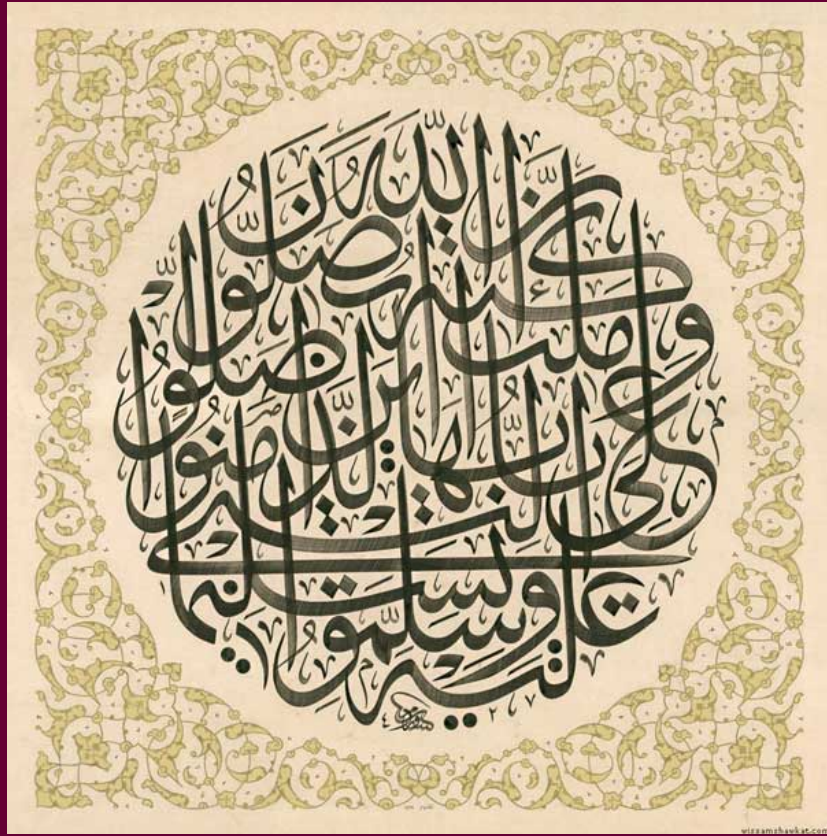 إن الله وملائكته يصلون على النبي يا أيها الذين آمنوا صلوا عليه وسلموا تسليما
wissamshawkat.com